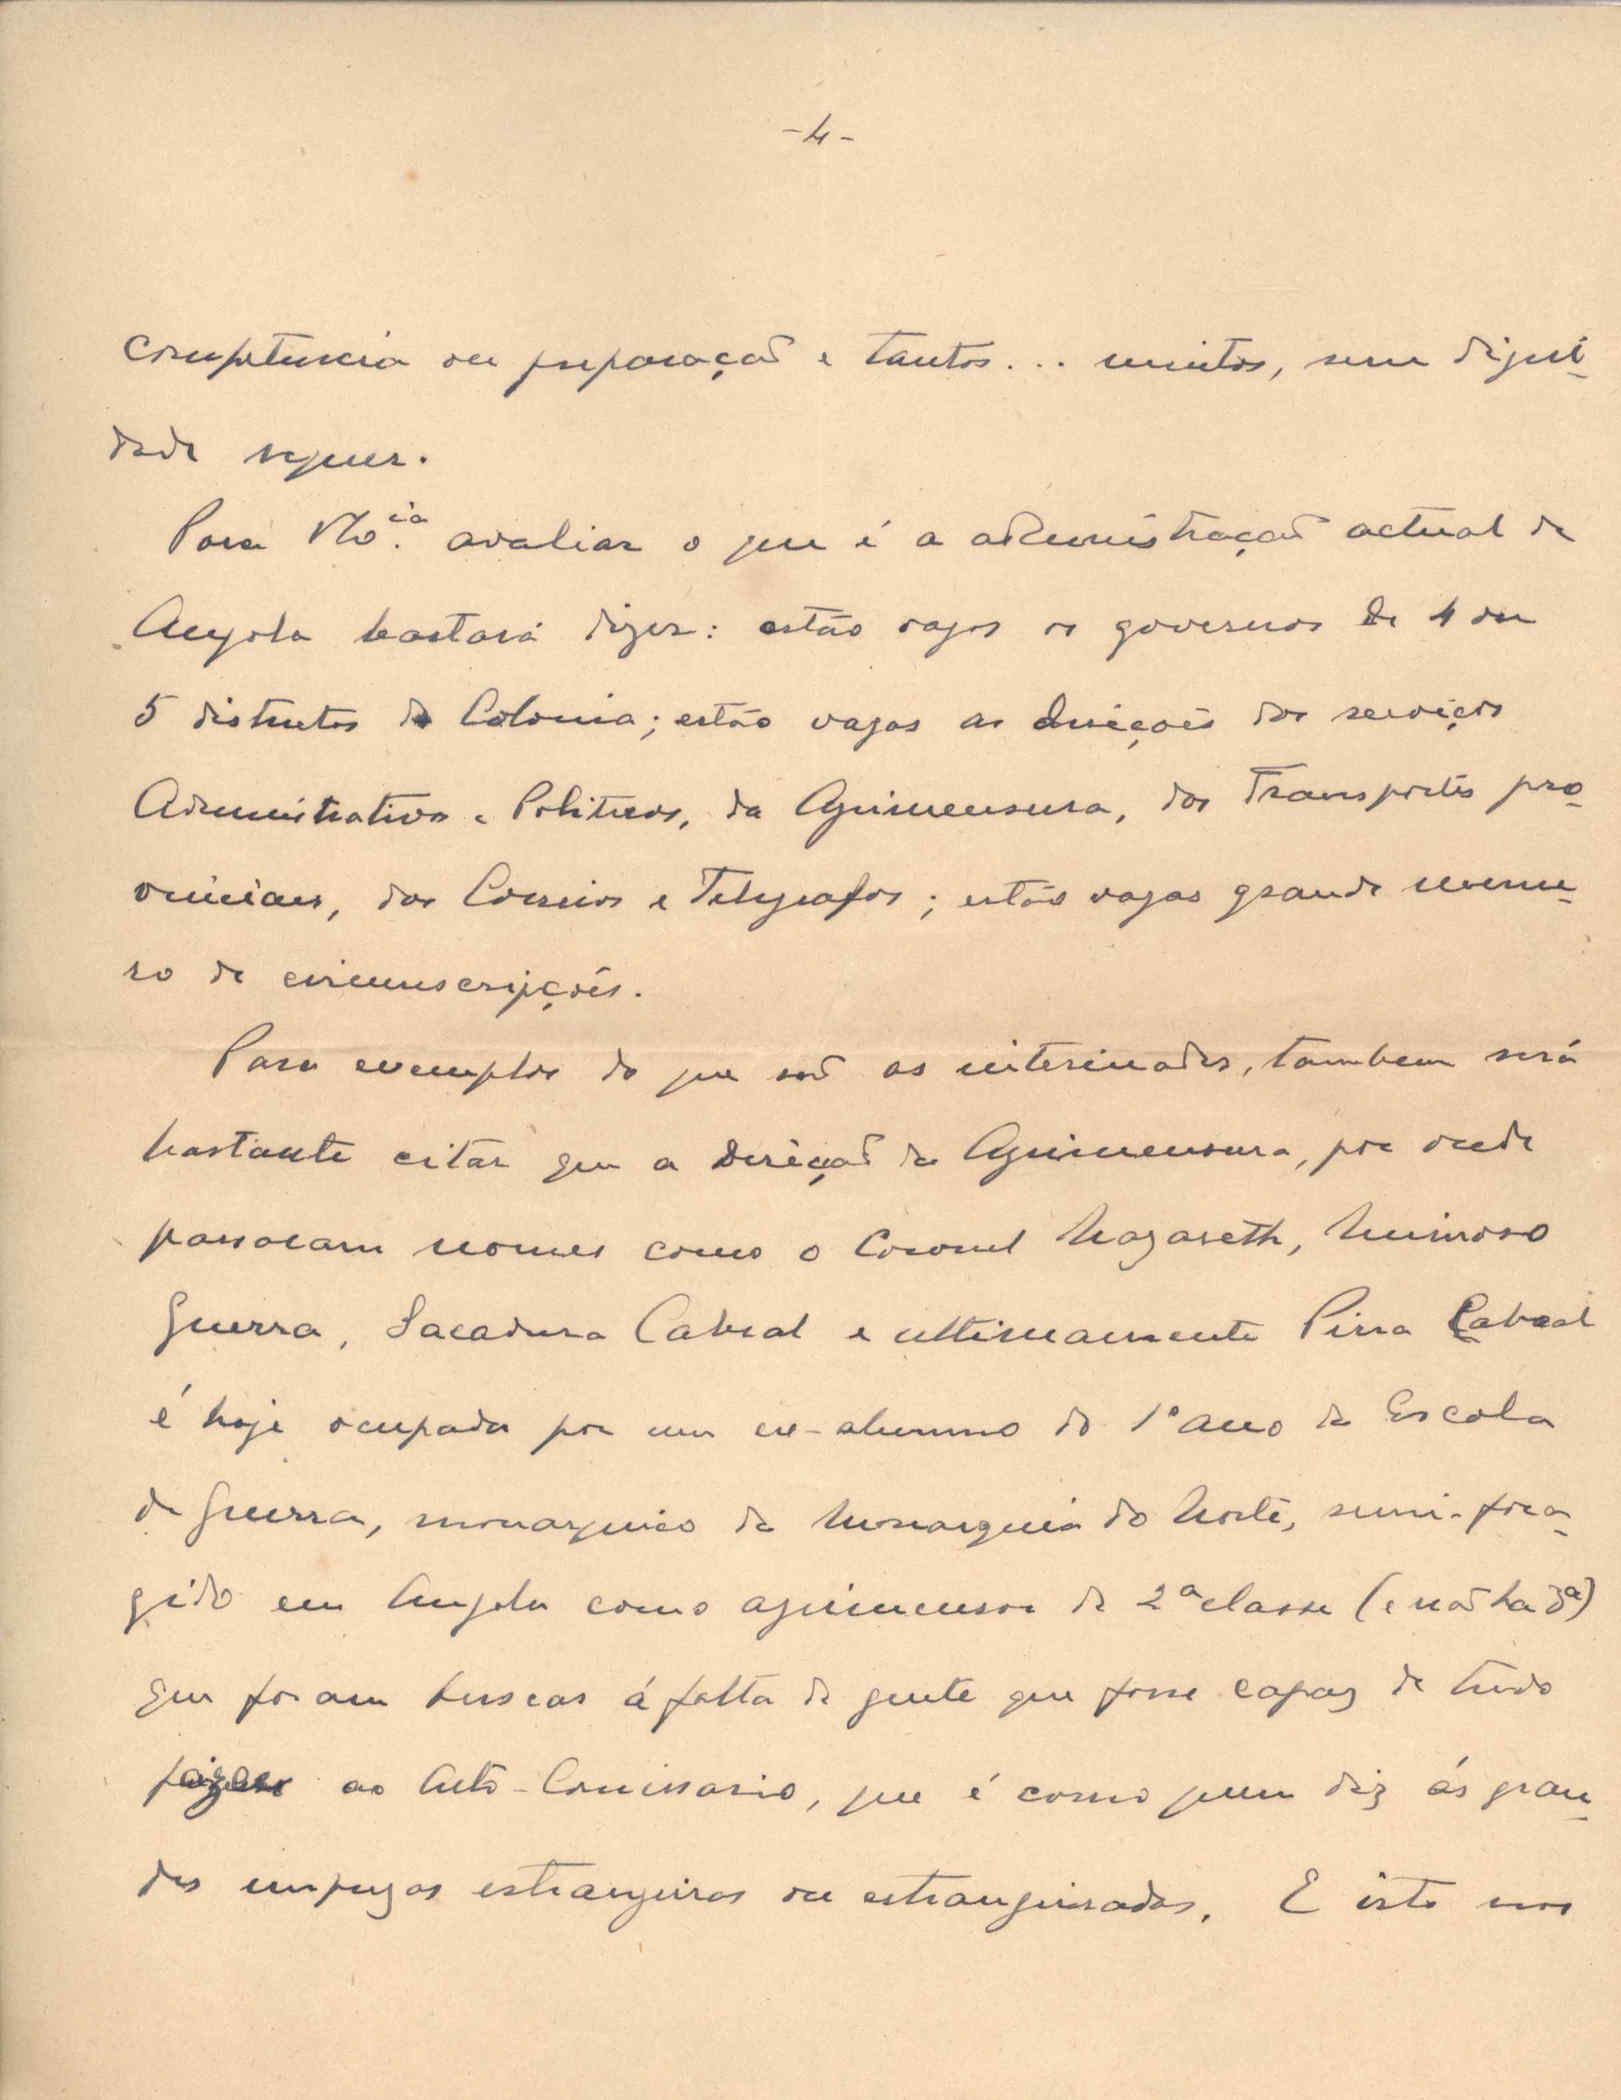 -4-
competencia ou preparação e tantos... muitos, sem digni-
dade sequer.
Para V. Ex.cia avaliar o que é a administração actual de
Angola bastará dizer: estão vagos os governos de 4 ou
5 distritos da Colonia; estão vagas as direcções dos serviços
Administrativos e Politicos, da Agrimensura, dos Transportes pro-
vinciais, dos Correios e Telegrafos; estão vagas grande nume-
ro de circunscrições.
Para exemplos do que são as interinidades, tambem será
bastante citar que a Direcção da Agrimensura, por onde
passaram nomes como o Coronel Nazareth, Mimoso
Guerra, Sacadura Cabral e ultimamente Pina Cabral
é hoje ocupada por um ex-alumno do 1º ano da Escola
de Guerra, monarquico da Monarquia do Norte, fora-
gido em Angola como agrimensor de 2ª classe (e não ha 3ª)
que foram buscar á falta de gente que fosse capaz de tudo
fazer ao Alto-Comissario, que é como quem diz ás gran-
des empresas estrangeiras ou estrangeiradas. E isto nos